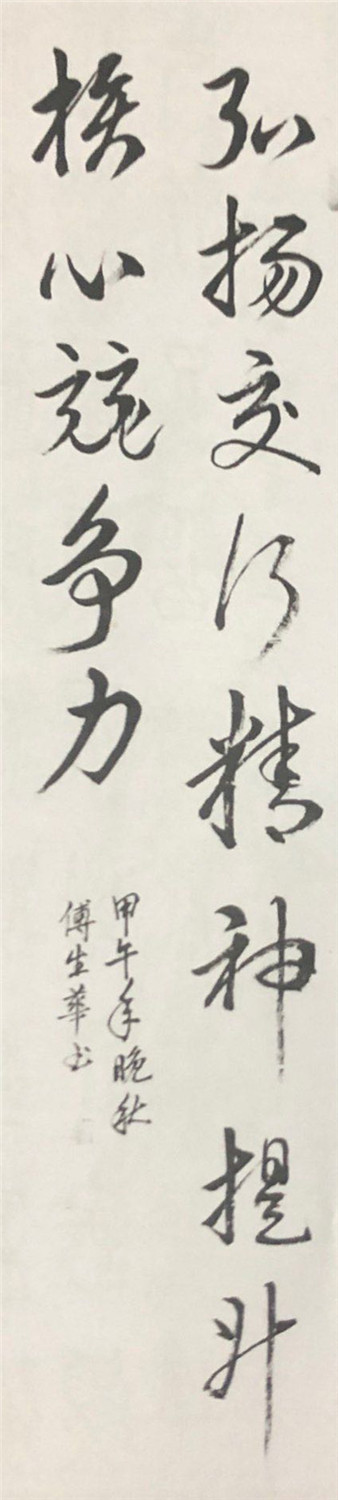 弘扬交行精神提升
核心竞争力
甲午年晚秋
傅生華书